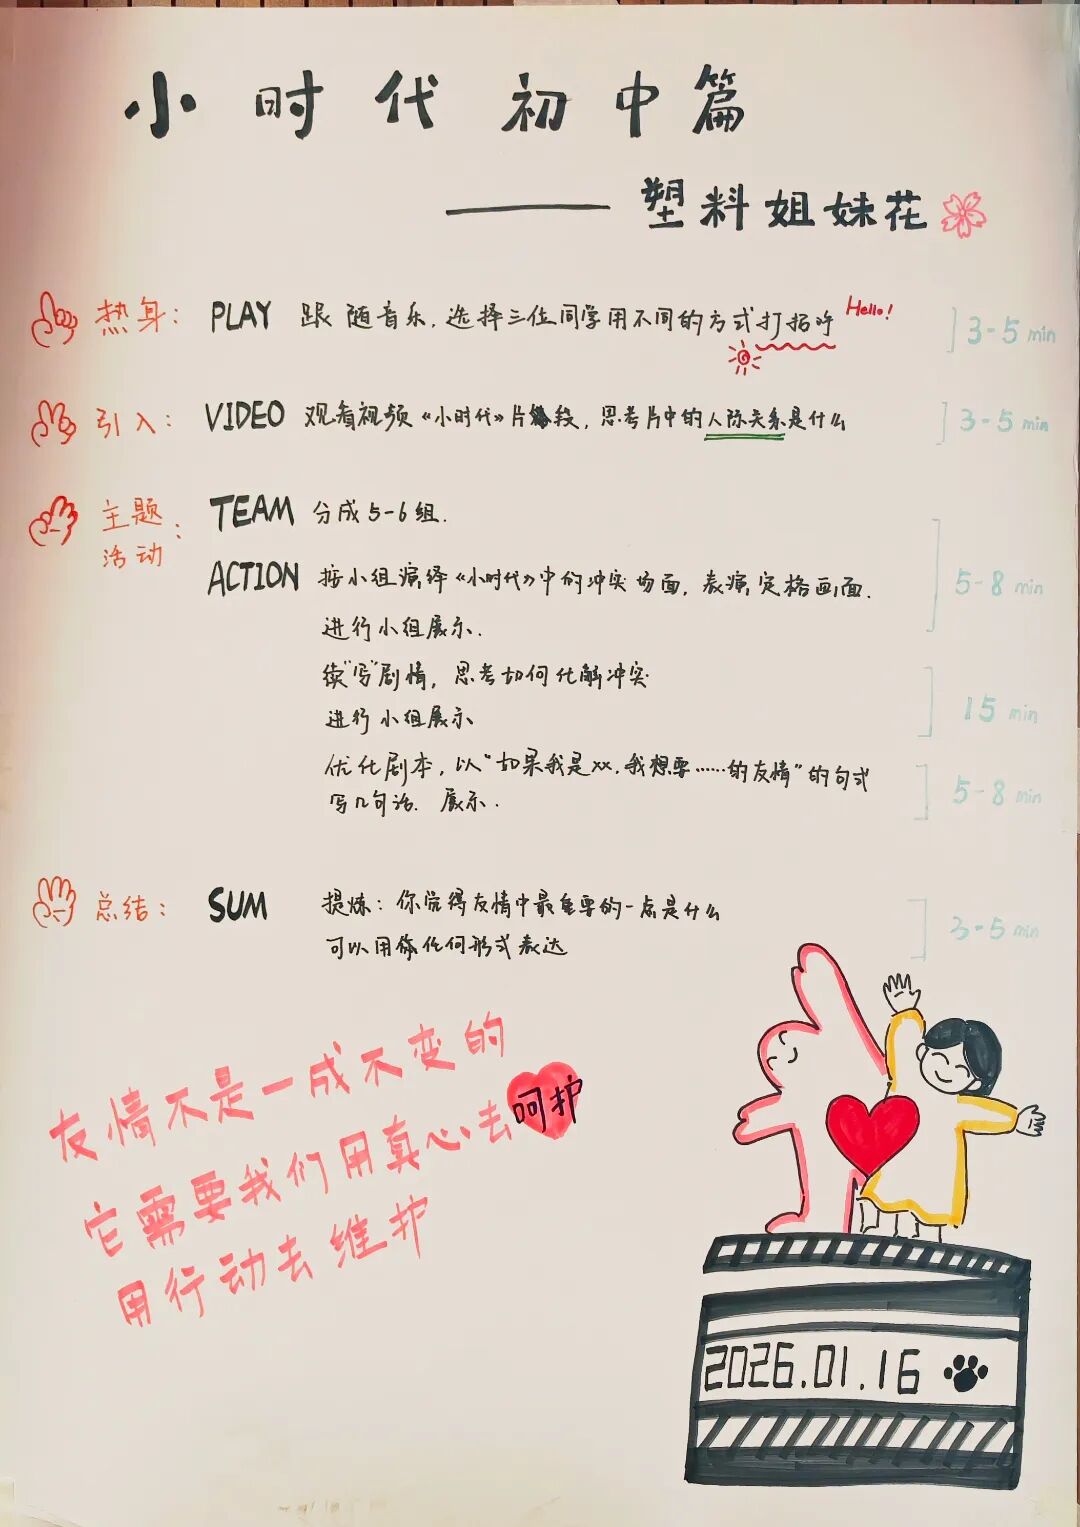 小时代 初中篇
—— 塑料姐妹花
热身: PLAY 跟随音乐,选择三位同学用不同的方式打招呼 Hello! 3-5 min
引入: VIDEO 观看视频《小时代》片段,思考片中的人际关系是什么 3-5 min
主题活动: TEAM 分成5-6组.
ACTION 按小组演绎《小时代》中的冲突场面,表演定格画面. 5-8 min
进行小组展示.
续"写"剧情,思考如何化解冲突 15 min
进行小组展示
优化剧本,以"如果我是xx,我想要……的友情"的句式 5-8 min
写几句话. 展示.
总结: SUM 提炼:你觉得友情中最重要的一点是什么 3-5 min
可以用任何形式表达
友情不是一成不变的
它需要我们用真心去呵护
用行动去维护
2026.01.16